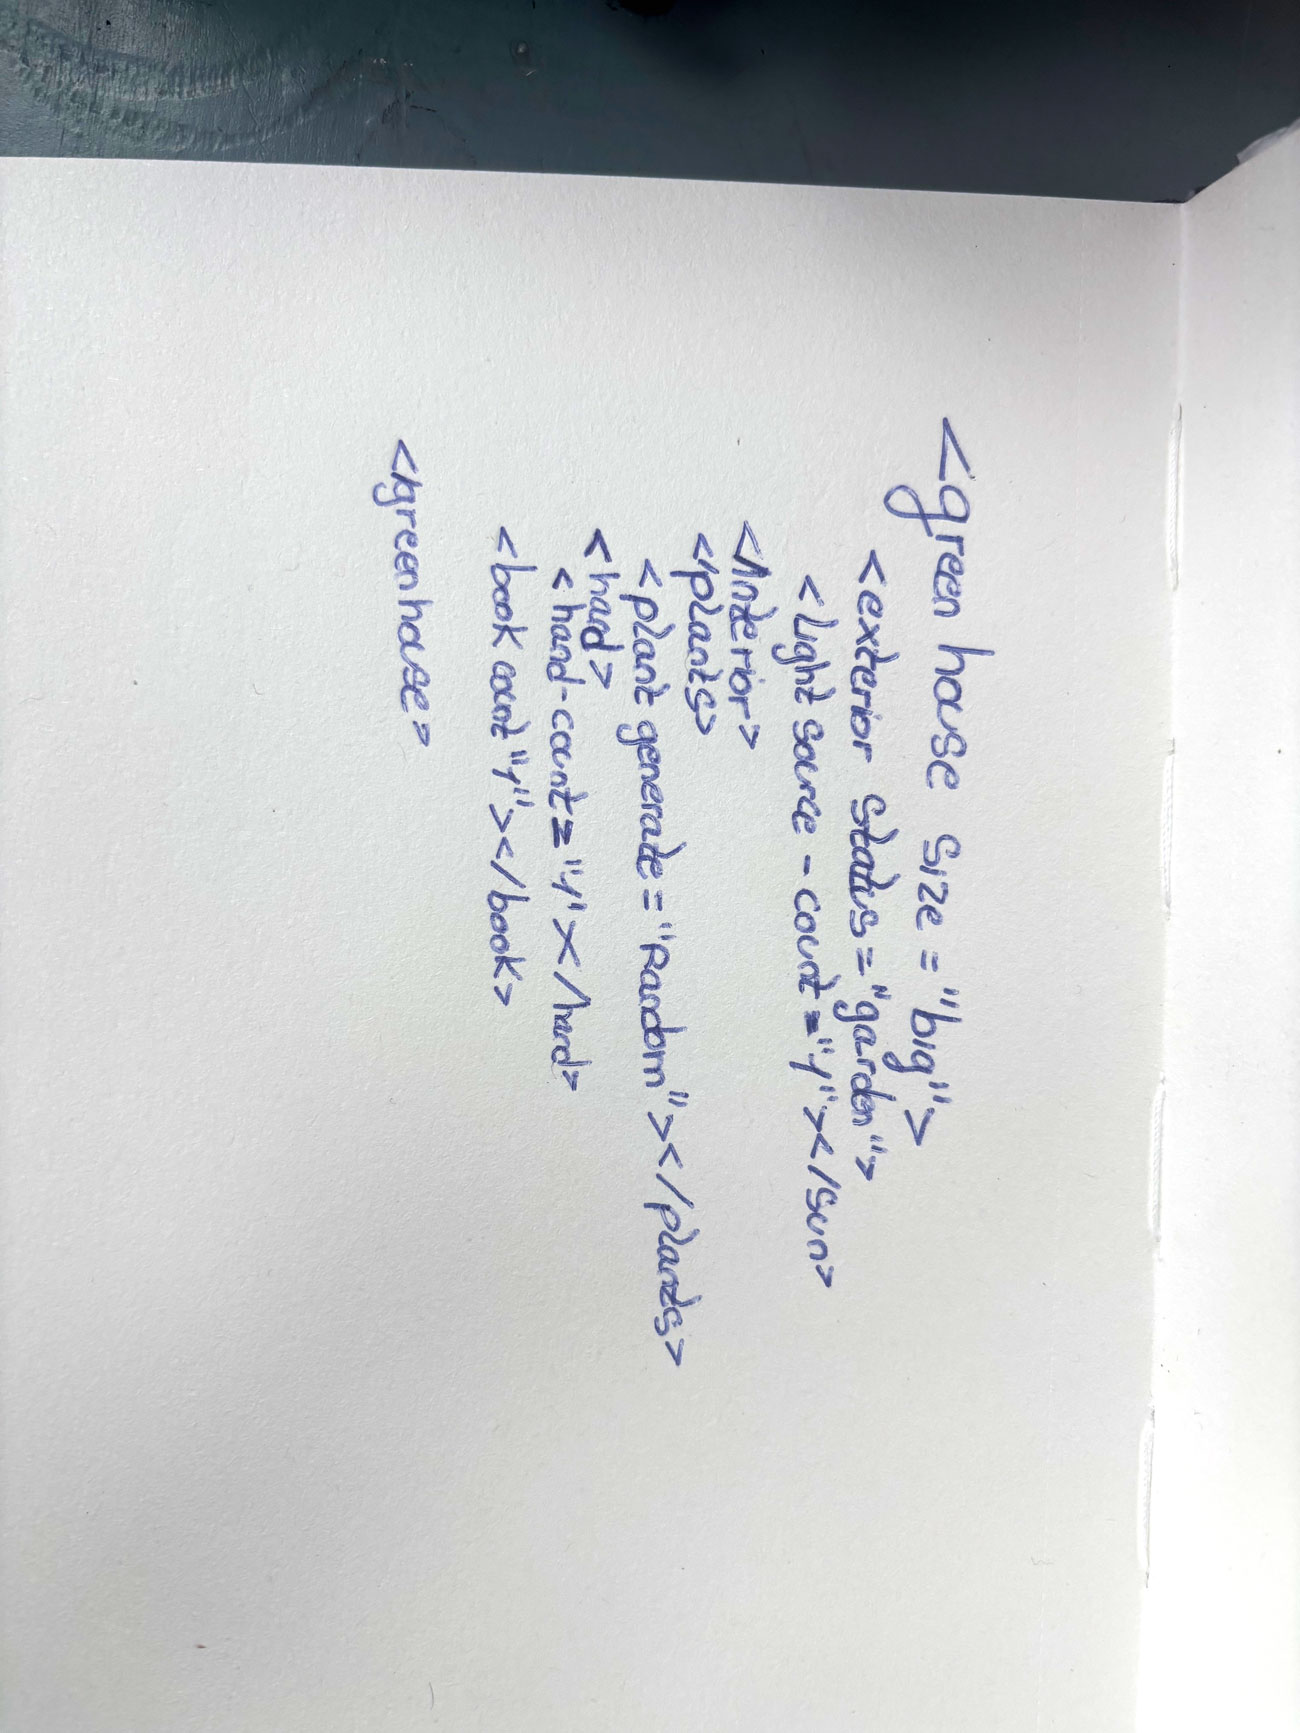 <green house size="big">
<exterior status="garden">
<Light source-count="1"></sun>
</interior>
</plants>
<plant generate="Random"></plants>
<hand>
<hand-count="1"></hand>
<book count"1"></book>
</greenhouse>